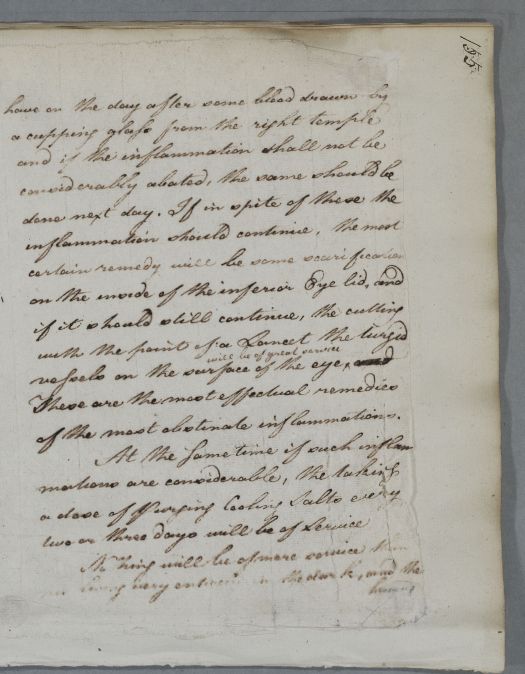 155
have on the day after some blood drawn by
a cupping glass from the right temple
and if the inflammation shall not be
considerably abated, the same should be
done next day. If in spite of these the
inflammation should continue, the most
certain remedy will be some scarification
on the inside of the inferior Eye lid, and
if it should still continue, the cutting
with the point of a Lancet the turgid
will be of great service
vessels on the surface of the eye,
These are the most effectual remedies
of the most obstinate inflammations.
At the same time if such inflam
mations are considerable, the taking
a dose of Purging Cooling Salts every
two or three days will be of Service
No thing will be of more service than
being very in the dark, and the